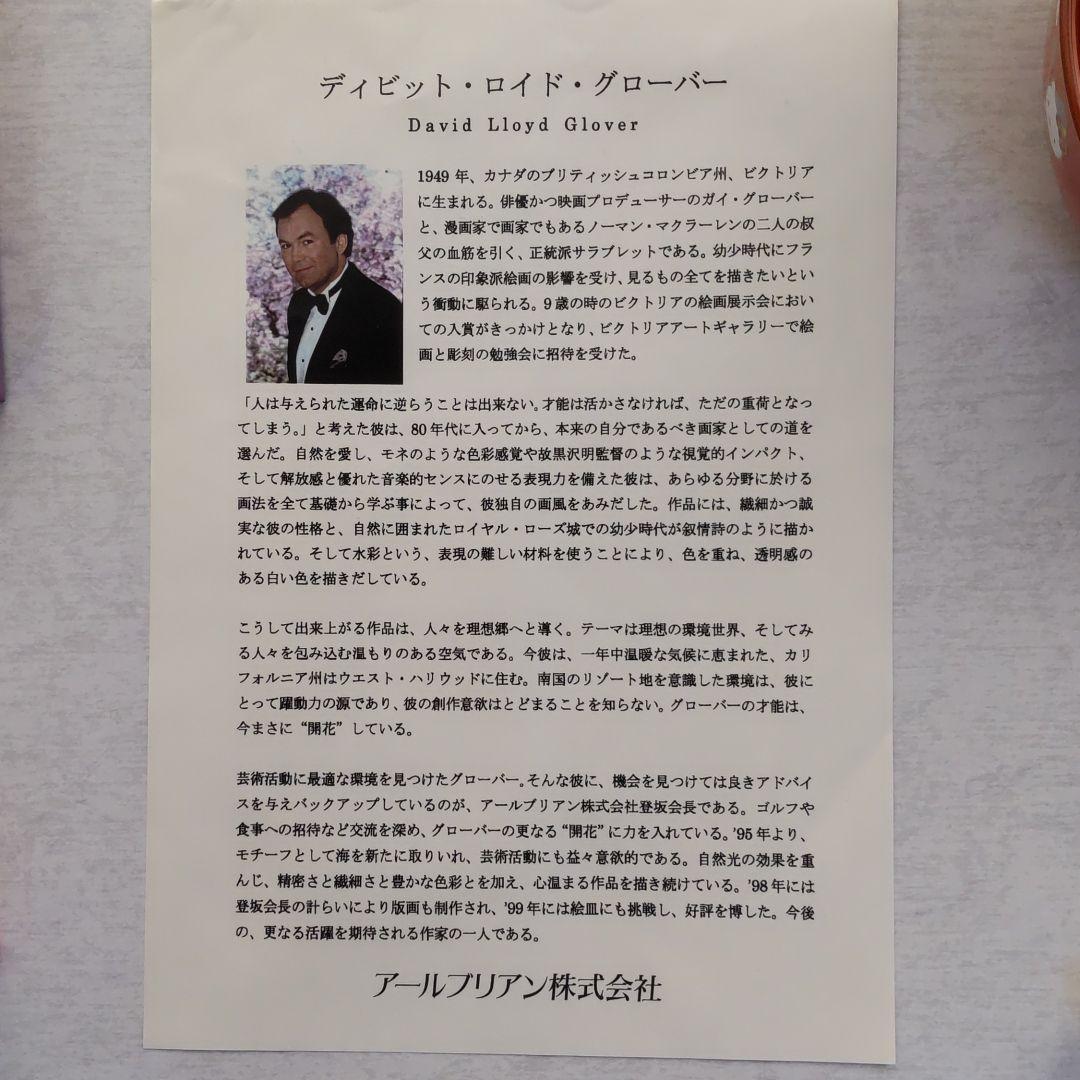 ディビット・ロイド・グローバー
David Lloyd Glover
1949 年、カナダのブリティッシュコロンビア州、ビクトリア
に生まれる。俳優かつ映画プロデューサーのガイ・グローバー
と、漫画家で画家でもあるノーマン・マクラーレンの二人の叔
父の血筋を引く、正統派サラブレットである。幼少時代にフラ
ンスの印象派絵画の影響を受け、見るもの全てを描きたいとい
う衝動に駆られる。9 歳の時のビクトリアの絵画展示会におい
ての入賞がきっかけとなり、ビクトリアアートギャラリーで絵
画と彫刻の勉強会に招待を受けた。
「人は与えられた運命に逆らうことは出来ない。才能は活かさなければ、ただの重荷となっ
てしまう。」と考えた彼は、80 年代に入ってから、本来の自分であるべき画家としての道を
選んだ。自然を愛し、モネのような色彩感覚や故黒沢明監督のような視覚的インパクト、
そして解放感と優れた音楽的センスにのせる表現力を備えた彼は、あらゆる分野に於ける
画法を全て基礎から学ぶ事によって、彼独自の画風をあみだした。作品には、繊細かつ誠
実な彼の性格と、自然に囲まれたロイヤル・ローズ城での幼少時代が叙情詩のように描か
れている。そして水彩という、表現の難しい材料を使うことにより、色を重ね、透明感の
ある白い色を描きだしている。
こうして出来上がる作品は、人々を理想郷へと導く。テーマは理想の環境世界、そしてみ
る人々を包み込む温もりのある空気である。今彼は、一年中温暖な気候に恵まれた、カリ
フォルニア州はウエスト・ハリウッドに住む。南国のリゾート地を意識した環境は、彼に
とって躍動力の源であり、彼の創作意欲はとどまることを知らない。グローバーの才能は、
今まさに “開花” している。
芸術活動に最適な環境を見つけたグローバー。そんな彼に、機会を見つけては良きアドバイ
スを与えバックアップしているのが、アールブリアン株式会社登坂会長である。ゴルフや
食事への招待など交流を深め、グローバーの更なる “開花” に力を入れている。’95 年より、
モチーフとして海を新たに取りいれ、芸術活動にも益々意欲的である。自然光の効果を重
んじ、精密さと繊細さと豊かな色彩とを加え、心温まる作品を描き続けている。’98 年には
登坂会長の計らいにより版画も制作され、’99 年には絵皿にも挑戦し、好評を博した。今後
の、更なる活躍を期待される作家の一人である。
アールブリアン株式会社